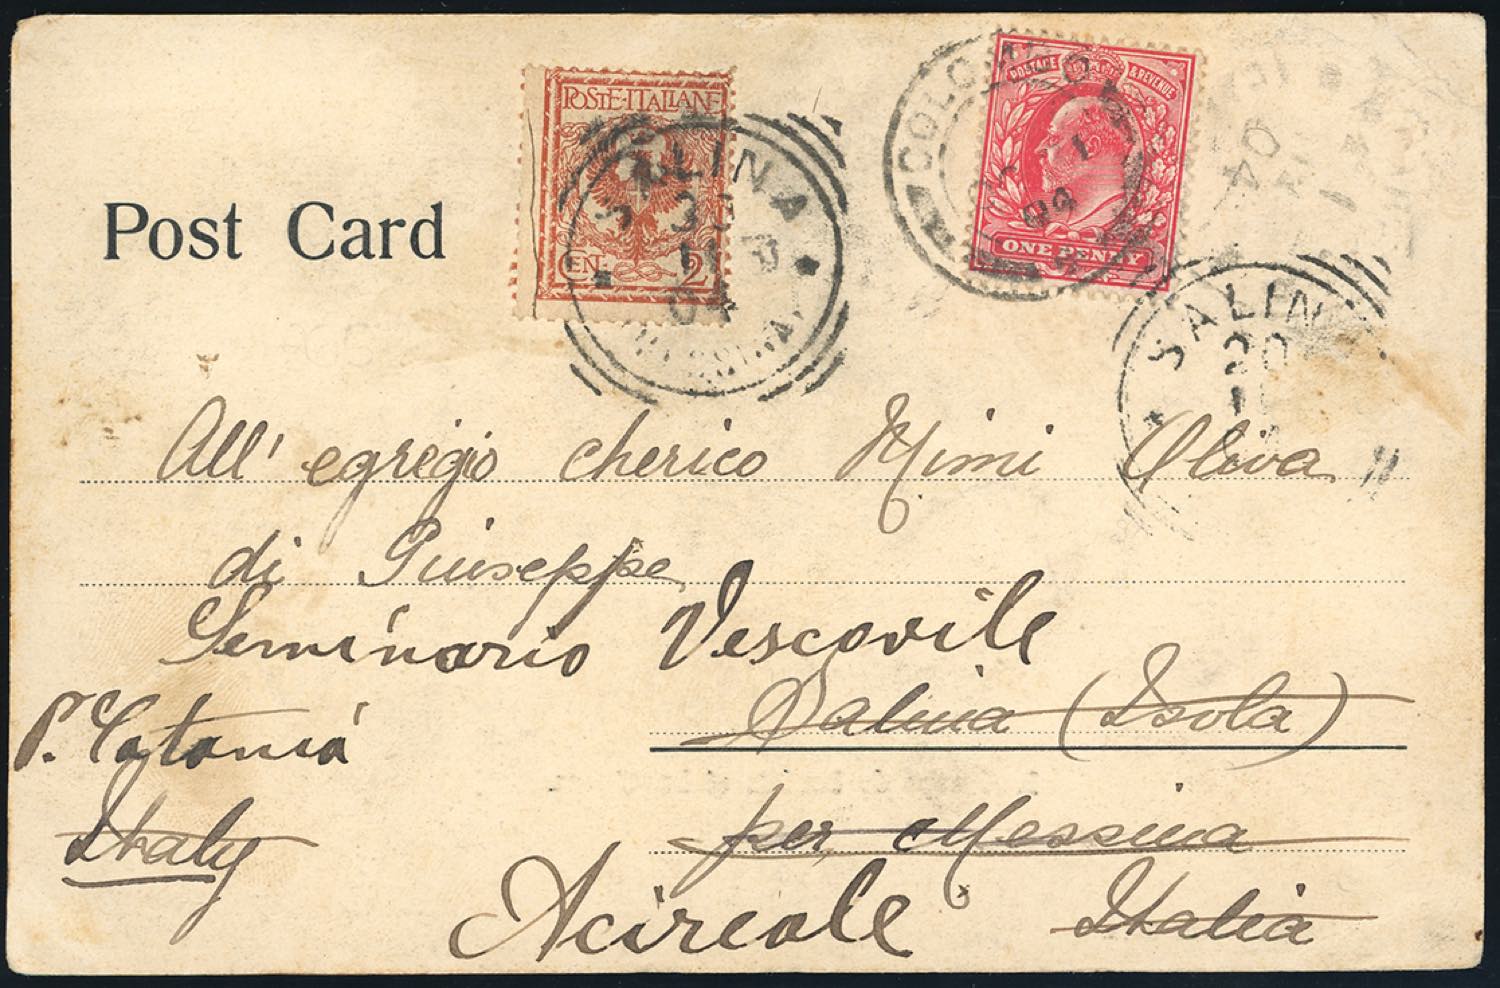 POSTE·ITALIANE
CEN· 2
SALINA
11
04
COLOMBO
POSTAGE & REVENUE
1
04
ONE PENNY
Post Card
SALIN
20
All' egregio cherico Mimi Oliva
di Giuseppe
Seminario Vescovile
Salina (Isola)
P. Catania
per Messina
Italy
Acireale
Italia